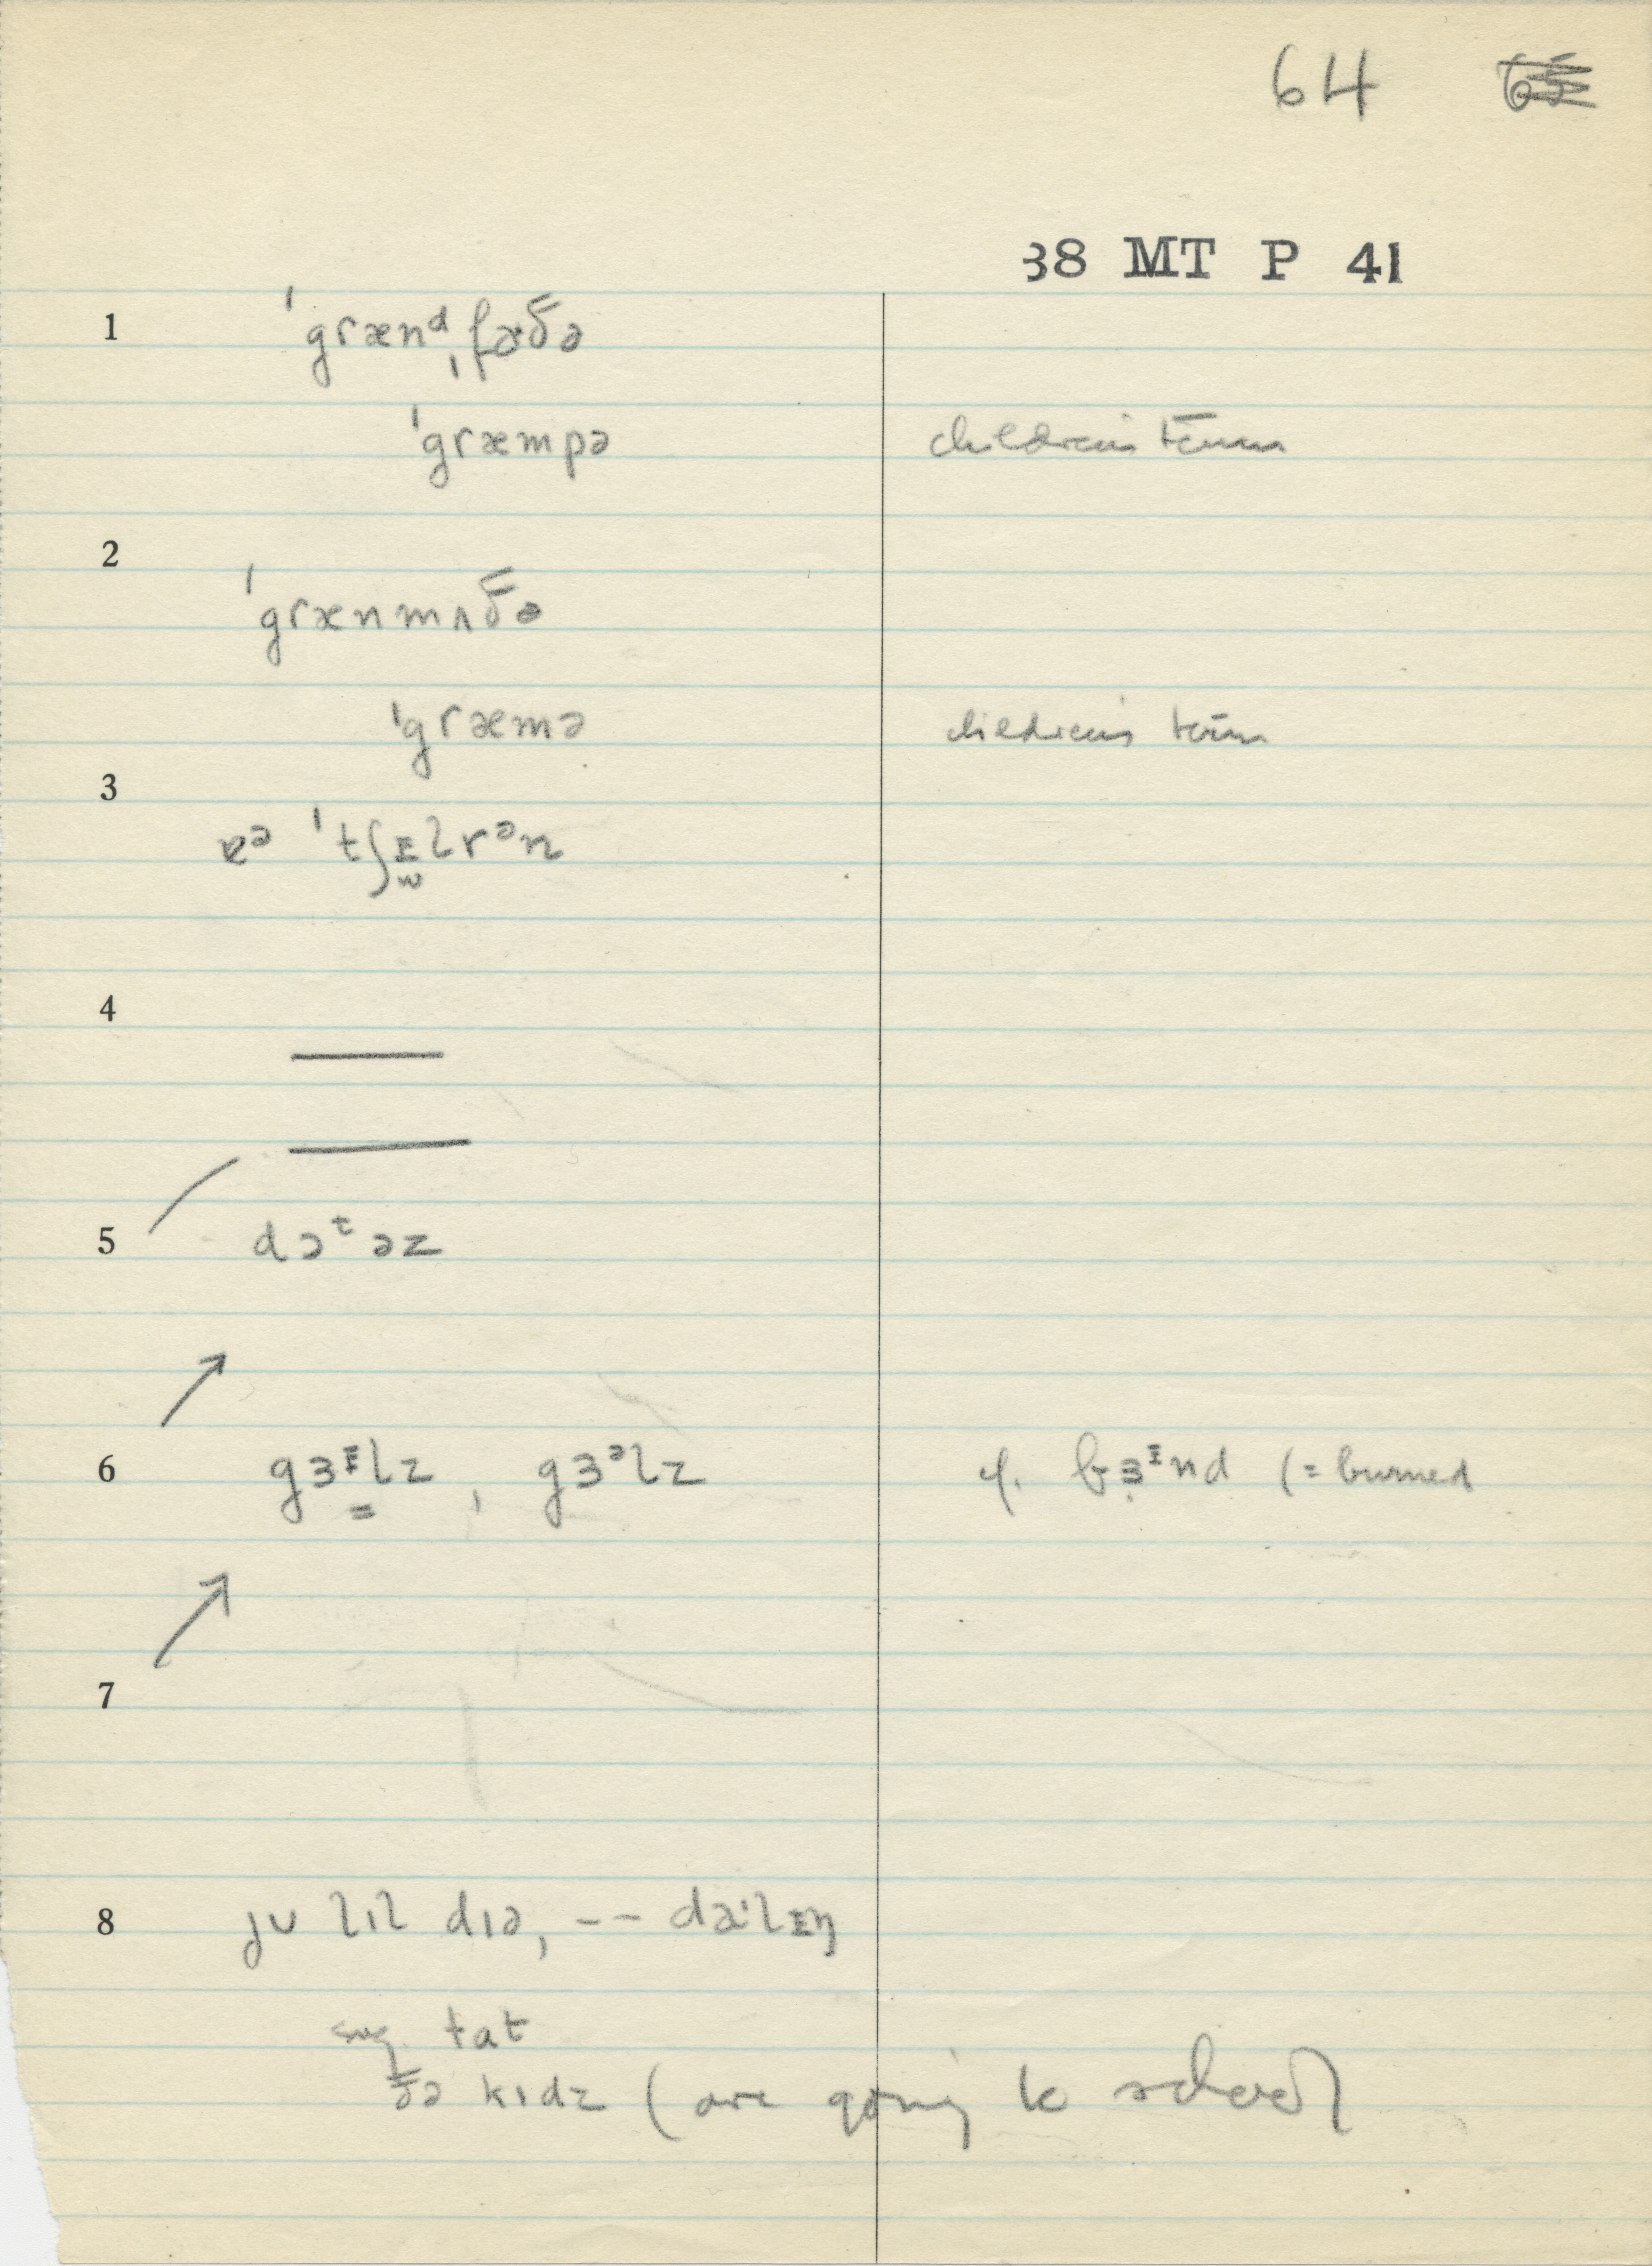 64
38 MT P 41
1 ˈgrænᵈˌfɑðə
ˈgræmpə children's term
2
ˈgrænmʌðə
ˈgræmə children's term
3
ˈtʃɪlrᵊn
4
5 dɔᵗəz
6 gɜᶤlz, gɜᵊlz cf. bɜᶤnd (= burned
7
8 jʊ lɪl dɪə, -- daˑlɪŋ
tat
ðə kɪdz (are going to school